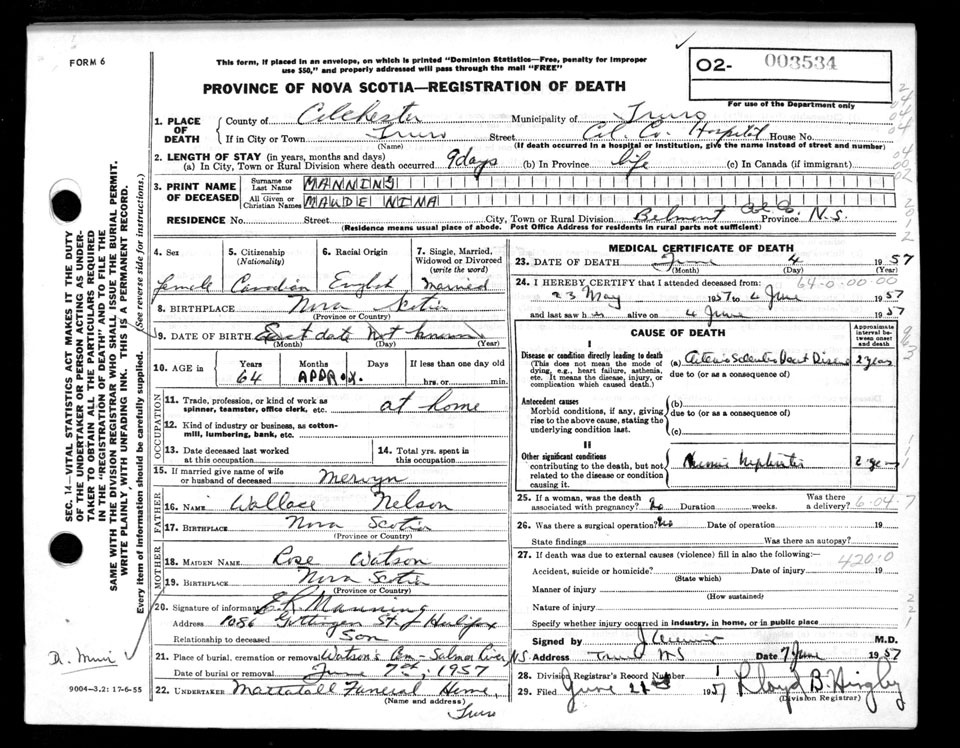 FORM 6
This form, if placed in an envelope, on which is printed "Dominion Statistics—Free, penalty for improper
use $50," and properly addressed will pass through the mail "FREE"
PROVINCE OF NOVA SCOTIA—REGISTRATION OF DEATH
O2- 003534
For use of the Department only
1. PLACE OF DEATH County of Colchester Municipality of Truro
If in City or Town Truro Street Col. Co. Hospital House No.
(Name) (If death occurred in a hospital or institution, give the name instead of street and number)
2. LENGTH OF STAY (in years, months and days)
(a) In City, Town or Rural Division where death occurred 9 days (b) In Province life (c) In Canada (if immigrant)
3. PRINT NAME OF DECEASED Surname or Last Name MANNING
All Given or Christian Names MAUDE NINA
RESIDENCE No. Street City, Town or Rural Division Belmont Col. Co. Province N.S.
(Residence means usual place of abode. Post Office Address for residents in rural parts not sufficient)
4. Sex 5. Citizenship (Nationality) 6. Racial Origin 7. Single, Married, Widowed or Divorced (write the word)
female Canadian English Married
8. BIRTHPLACE Nova Scotia
(Province or Country)
9. DATE OF BIRTH Exact date Not known
(Month) (Day) (Year)
10. AGE in Years Months Days If less than one day old
64 APPROX. hrs. or min.
OCCUPATION
11. Trade, profession, or kind of work as spinner, teamster, office clerk, etc. at home
12. Kind of industry or business, as cotton-mill, lumbering, bank, etc.
13. Date deceased last worked at this occupation 14. Total yrs. spent in this occupation
15. If married give name of wife or husband of deceased Mervyn
FATHER
16. NAME Wallace Nelson
17. BIRTHPLACE Nova Scotia
(Province or Country)
MOTHER
18. MAIDEN NAME Rose Watson
19. BIRTHPLACE Nova Scotia
(Province or Country)
20. Signature of informant Manning
Address Gottingen St Halifax
Relationship to deceased Son
21. Place of burial, cremation or removal Watson's Cem - Salmon River, N.S.
Date of burial or removal June 7th, 1957
22. UNDERTAKER Mattatall Funeral Home,
(Name and address)
Truro
MEDICAL CERTIFICATE OF DEATH
23. DATE OF DEATH June 4 1957
(Month) (Day) (Year)
24. I HEREBY CERTIFY that I attended deceased from: 64-0-00-00
23 May 1957 to 4 June 1957
and last saw her alive on 4 June 1957
CAUSE OF DEATH
Approximate interval between onset and death
I
Disease or condition directly leading to death (a) Heart Disease 2 years
(This does not mean the mode of dying, e.g., heart failure, asthenia, etc. It means the disease, injury, or complication which caused death.)
due to (or as a consequence of)
Antecedent causes
Morbid conditions, if any, giving rise to the above cause, stating the underlying condition last.
(b)
due to (or as a consequence of)
(c)
II
Other significant conditions
contributing to the death, but not related to the disease or condition causing it.
Chronic Nephritis 2 years
25. If a woman, was the death associated with pregnancy? No Duration weeks. Was there a delivery? 6-04-7
26. Was there a surgical operation? No Date of operation 19
State findings Was there an autopsy?
27. If death was due to external causes (violence) fill in also the following:—
420-0
Accident, suicide or homicide? Date of injury 19
(State which)
Manner of injury
(How sustained)
Nature of injury
Specify whether injury occurred in industry, in home, or in public place
Signed by M.D.
Address Truro NS Date 7 June 1957
28. Division Registrar's Record Number
29. Filed June 1957 Lloyd B. Higby
(Division Registrar)
SEC. 14—VITAL STATISTICS ACT MAKES IT THE DUTY
OF THE UNDERTAKER OR PERSON ACTING AS UNDER-
TAKER TO OBTAIN ALL THE PARTICULARS REQUIRED
IN THE "REGISTRATION OF DEATH" AND TO FILE THE
SAME WITH THE DIVISION REGISTRAR WHO SHALL ISSUE THE BURIAL PERMIT.
WRITE PLAINLY WITH UNFADING INK. THIS IS A PERMANENT RECORD.
Every item of information should be carefully supplied. (See reverse side for instructions.)
Dr. Muir
9004-3.2: 17-6-55